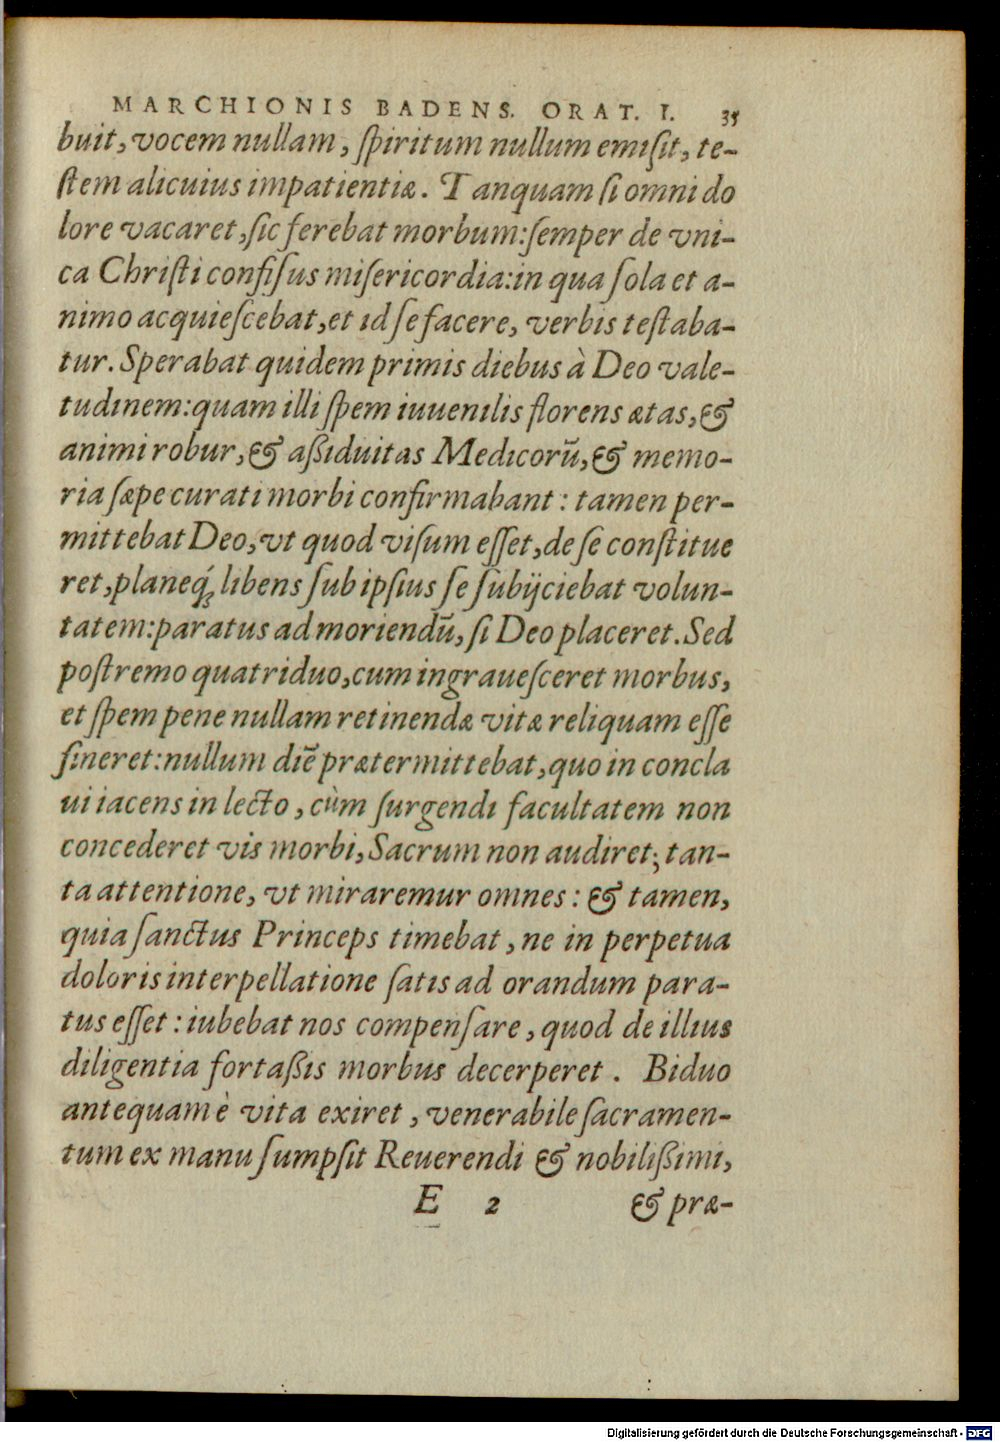 MARCHIONIS BADENS. ORAT. I. 35
buit, vocem nullam, ſpiritum nullum emiſit, te-
ſtem alicuius impatientiæ. Tanquam ſi omni do
lore vacaret, ſic ferebat morbum: ſemper de vni-
ca Chriſti confiſus miſericordia: in qua ſola et a-
nimo acquieſcebat, et id ſe facere, verbis teſtaba-
tur. Sperabat quidem primis diebus à Deo vale-
tudinem: quam illi ſpem iuuenilis florens ætas, &
animi robur, & aßiduitas Medicorũ, & memo-
ria ſæpe curati morbi confirmabant: tamen per-
mittebat Deo, vt quod viſum eſſet, de ſe conſtitue
ret, planeq́; libens ſub ipſius ſe ſubijciebat volun-
tatem: paratus ad moriendũ, ſi Deo placeret. Sed
poſtremo quatriduo, cum ingraueſceret morbus,
et ſpem pene nullam retinendæ vitæ reliquam eſſe
ſineret: nullum diẽ prætermittebat, quo in concla
ui iacens in lecto, cùm ſurgendi facultatem non
concederet vis morbi, Sacrum non audiret; tan-
ta attentione, vt miraremur omnes: & tamen,
quia ſanctus Princeps timebat, ne in perpetua
doloris interpellatione ſatis ad orandum para-
tus eſſet: iubebat nos compenſare, quod de illius
diligentia fortaßis morbus decerperet. Biduo
antequam è vita exiret, venerabile ſacramen-
tum ex manu ſumpſit Reuerendi & nobilißimi,
E 2 & præ-
Digitalisierung gefördert durch die Deutsche Forschungsgemeinschaft - DFG